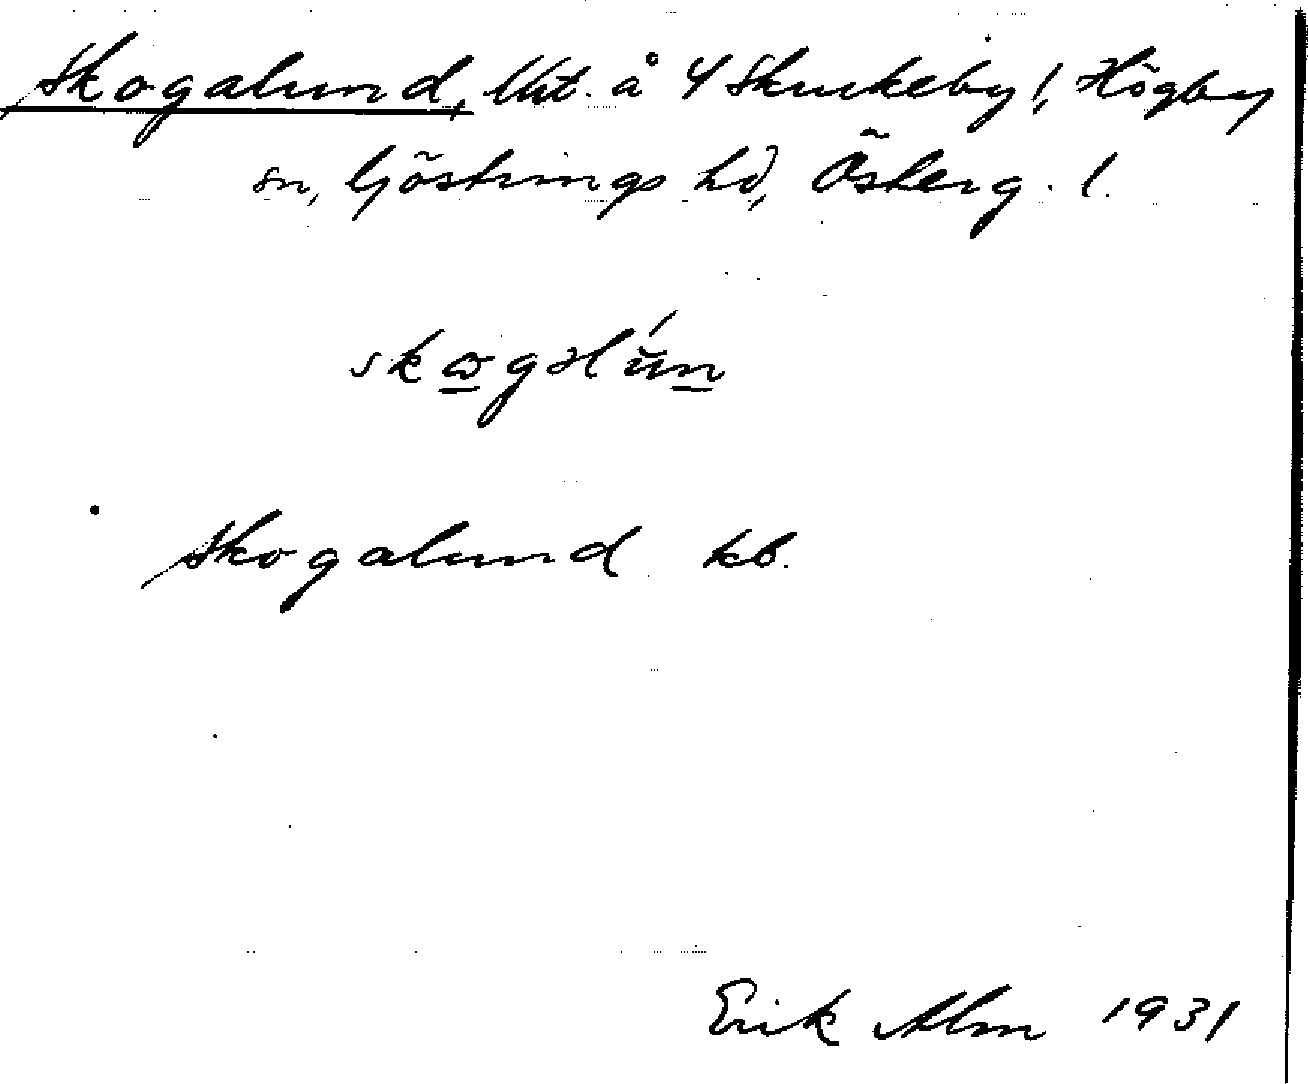 Skogalund, lht. å 4 Skuckeby!, Högby
sn, Göstrings hd, Österg. l.
Skogalund kb.
Erik Alm 1931